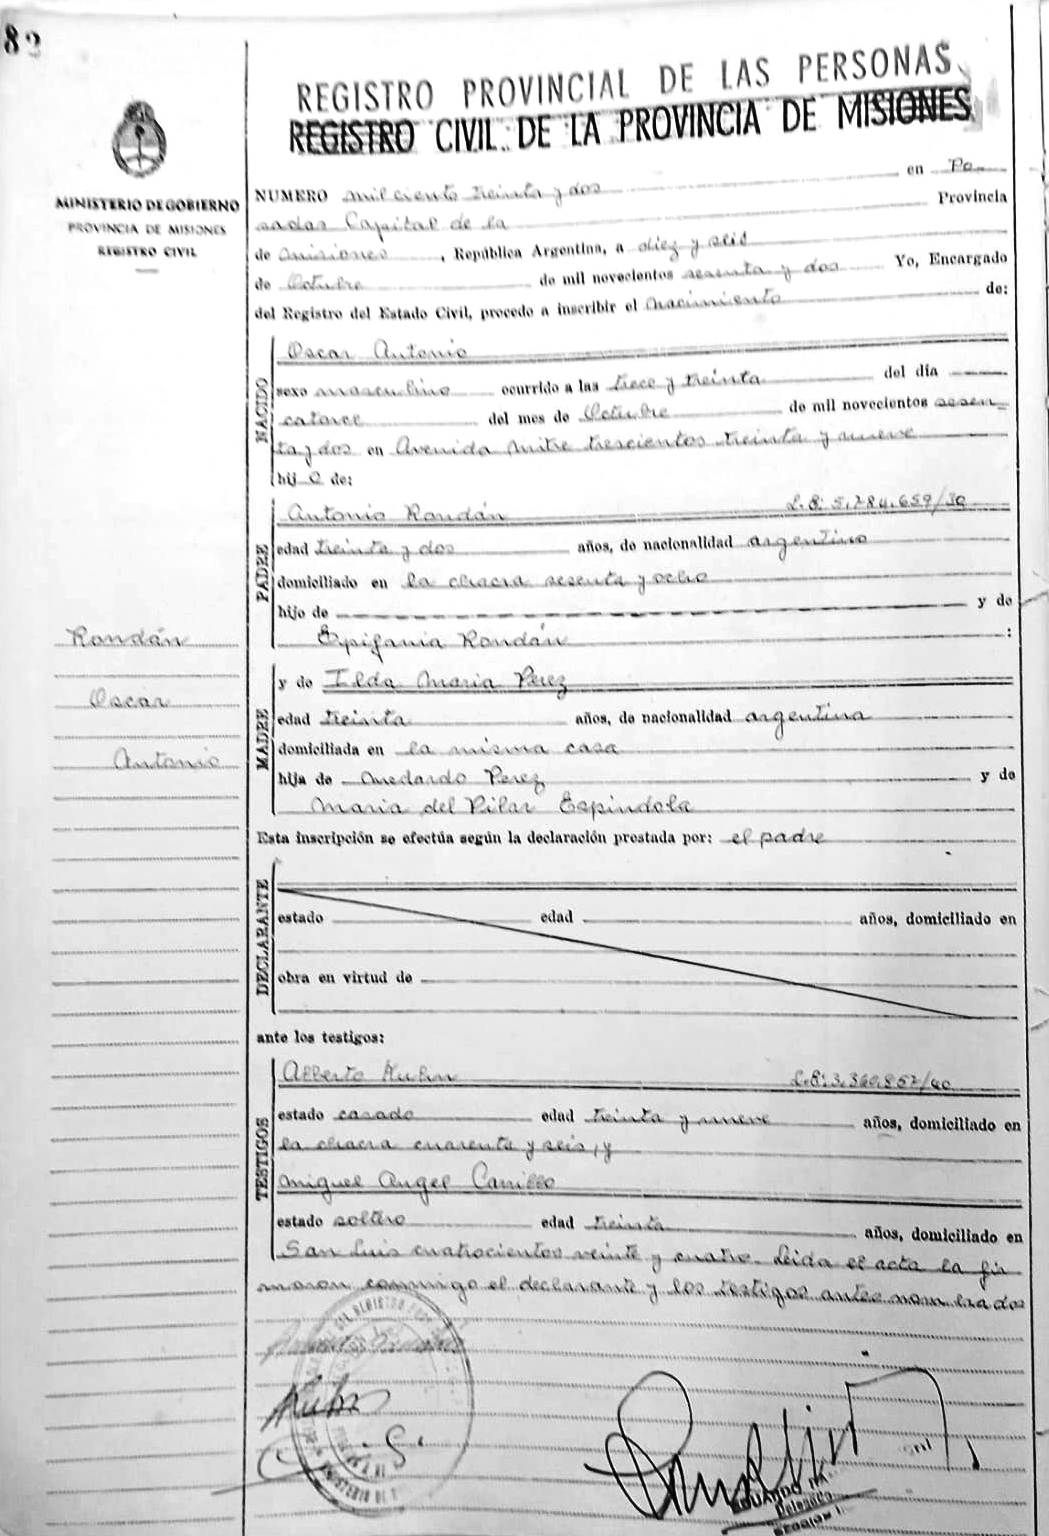 82
REGISTRO PROVINCIAL DE LAS PERSONAS
REGISTRO CIVIL DE LA PROVINCIA DE MISIONES
MINISTERIO DE GOBIERNO
PROVINCIA DE MISIONES
REGISTRO CIVIL
NUMERO mil ciento treinta y dos en Po
sadas Capital de la Provincia
de Misiones, República Argentina, a diez y seis
de Octubre de mil novecientos sesenta y dos Yo, Encargado
del Registro del Estado Civil, procedo a inscribir el nacimiento de:
NACIDO
Oscar Antonio
sexo masculino ocurrido a las trece y treinta del día
catorce del mes de Octubre de mil novecientos sesen
ta y dos en Avenida Mitre trescientos treinta y nueve
hijo de:
PADRE
Antonio Rondán L.B: 5.784.659/30
edad treinta y dos años, de nacionalidad argentino
domiciliado en la chacra sesenta y ocho
hijo de y de
Epifania Rondán :
Rondán
Oscar
Antonio
MADRE
y de Ilda Maria Perez
edad treinta años, de nacionalidad argentina
domiciliada en la misma casa
hija de Medardo Perez y de
Maria del Pilar Espindola
Esta inscripción se efectúa según la declaración prestada por: el padre
DECLARANTE
estado edad años, domiciliado en
obra en virtud de
ante los testigos:
TESTIGOS
Alberto Kuhn
estado casado edad treinta y nueve años, domiciliado en
la chacra cuarenta y seis, y
Miguel Angel Carrillo
estado soltero edad treinta años, domiciliado en
San Luis cuatrocientos veinte y cuatro. Leida el acta la fir
maron conmigo el declarante y los testigos antes nombrados
Kuhn
EDUARDO